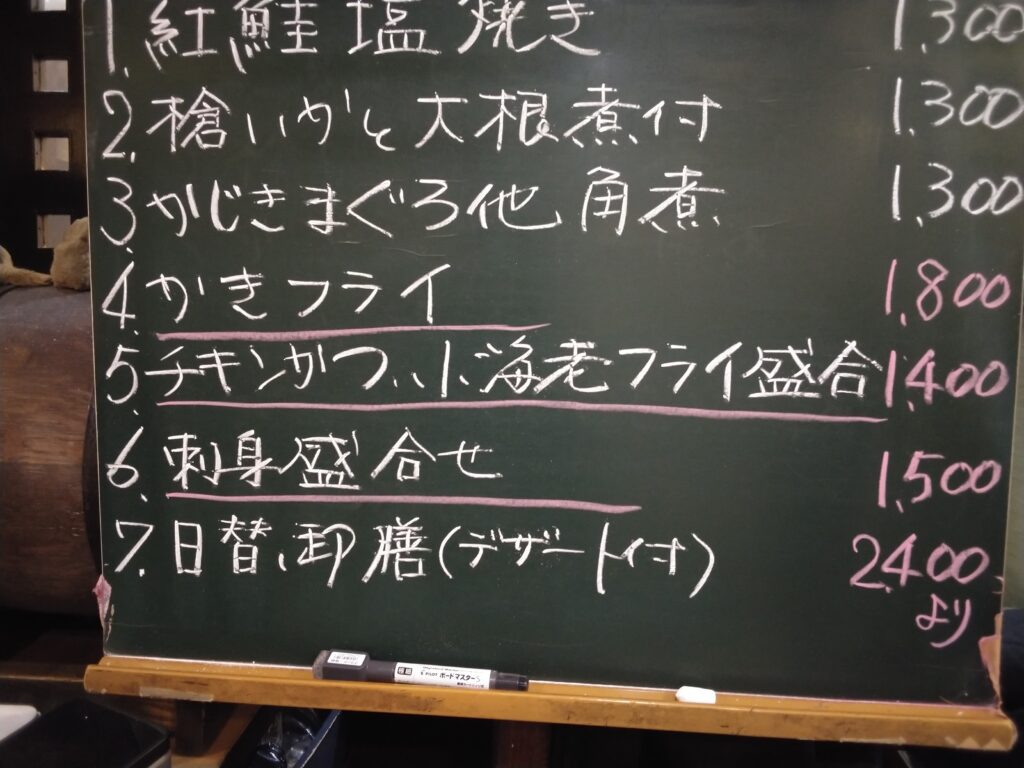 1. 紅鮭塩焼き 1,300
2. 槍いかと大根煮付 1,300
3. かじきまぐろ他角煮 1,300
4. かきフライ 1,800
5. チキンかつ、いか、海老フライ盛合 1,400
6. 刺身盛合せ 1,500
7. 日替御膳(デザート付) 2,400
より
PILOT ボードマスターS